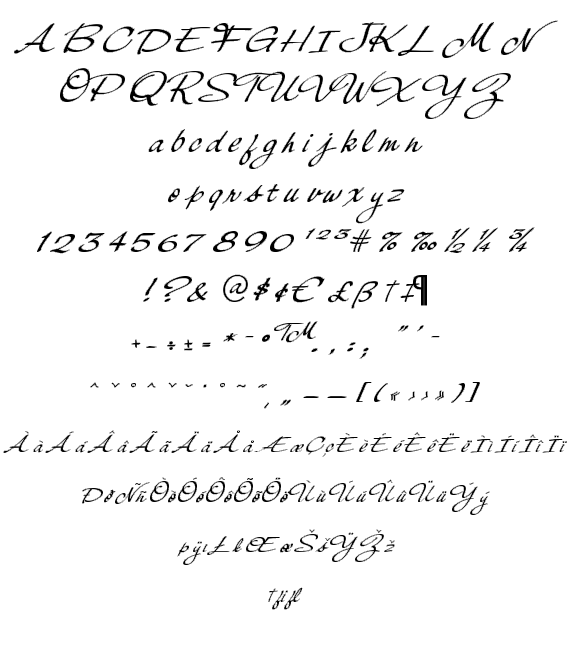 A B C D E F G H I J K L M N
O P Q R S T U V W X Y Z
a b c d e f g h i j k l m n
o p q r s t u v w x y z
1 2 3 4 5 6 7 8 9 0 ¹ ² ³ # % ‰ ½ ¼ ¾
! ? & @ $ ¢ € £ β † ‡ ¶
+ – ÷ ± = * - ° ™ . , : ; " ' -
^ ˇ ° ^ ˇ ˘ · ° ~ ˝ ‚ „ — — [ ( « › › » ) ]
À à Á á Â â Ã ã Ä ä Å å Æ æ Ç ç È è É é Ê ê Ë ë Ì ì Í í Î î Ï ï
Ð ð Ñ ñ Ò ò Ó ó Ô ô Õ õ Ö ö Ù ù Ú ú Û û Ü ü Ý ý
þ ÿ ı Ł ł Œ œ Š š Ÿ Ž ž
† fi fl